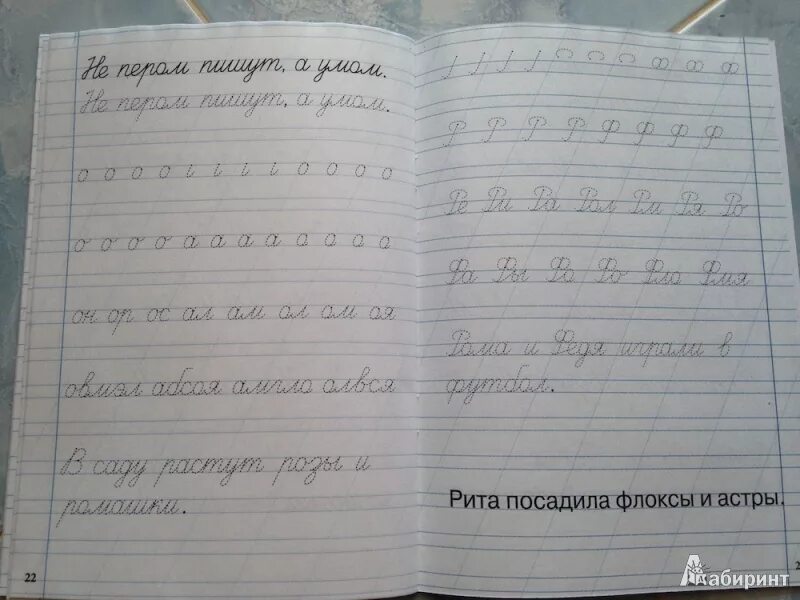 Не пером пишут, а умом.
Не пером пишут, а умом.
о о о о і і і і о о о о
о о о о а а а а о о о о
он ор ос ал ам ол ом оя
овмэл абсоя амгло олвся
В саду растут розы и
ромашки.
22
Р Р Р Р Ф Ф Ф Ф
Ре Ри Ра Рол Рм Ря Ро
Фа Фы Фо Фо Фло Фмя
Рома и Федя играли в
футбол.
Рита посадила флоксы и астры.
2
Лабиринт